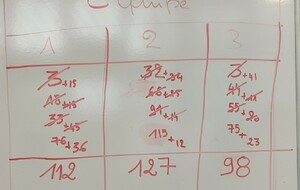 Equipe
1 2 3
3+15 32+34 3+41
18+15 66+25 44+11
33+43 91+24 55+20
76+36 115+12 75+23
112 127 98